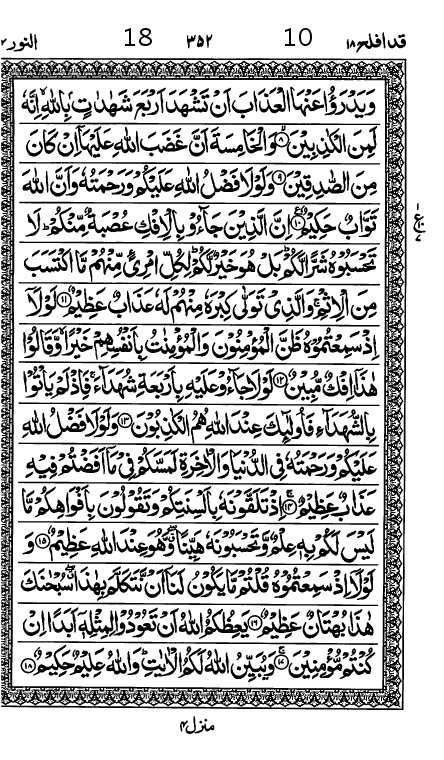 قد افلح ١٨ 10 ٣٥٢ 18 النور ٢
وَيَدْرَؤُا عَنْهَا الْعَذَابَ اَنْ تَشْهَدَ اَرْبَعَ شَهٰدٰتٍۭ بِاللّٰهِ ۙ اِنَّهٗ
لَمِنَ الْكٰذِبِيْنَ ۙ‏﴿۸﴾ وَالْخَامِسَةَ اَنَّ غَضَبَ اللّٰهِ عَلَيْهَاۤ اِنْ كَانَ
مِنَ الصّٰدِقِيْنَ ﴿۹﴾ وَلَوْلَا فَضْلُ اللّٰهِ عَلَيْكُمْ وَرَحْمَتُهٗ وَاَنَّ اللّٰهَ
تَوَّابٌ حَكِيْمٌ ﴿۱۰﴾ اِنَّ الَّذِيْنَ جَآءُوْ بِالْاِفْكِ عُصْبَةٌ مِّنْكُمْ ؕ لَا
تَحْسَبُوْهُ شَرًّا لَّكُمْ ؕ بَلْ هُوَ خَيْرٌ لَّكُمْ ؕ لِكُلِّ امْرِئٍ مِّنْهُمْ مَّا اكْتَسَبَ
مِنَ الْاِثْمِ ۚ وَالَّذِيْ تَوَلّٰى كِبْرَهٗ مِنْهُمْ لَهٗ عَذَابٌ عَظِيْمٌ ﴿۱۱﴾ لَوْلَاۤ
اِذْ سَمِعْتُمُوْهُ ظَنَّ الْمُؤْمِنُوْنَ وَالْمُؤْمِنٰتُ بِاَنْفُسِهِمْ خَيْرًا ۙ وَّقَالُوْا
هٰذَاۤ اِفْكٌ مُّبِيْنٌ ﴿۱۲﴾ لَوْلَا جَآءُوْ عَلَيْهِ بِاَرْبَعَةِ شُهَدَآءَ ۚ فَاِذْ لَمْ يَاْتُوْا
بِالشُّهَدَآءِ فَاُولٰٓئِكَ عِنْدَ اللّٰهِ هُمُ الْكٰذِبُوْنَ ﴿۱۳﴾ وَلَوْلَا فَضْلُ اللّٰهِ
عَلَيْكُمْ وَرَحْمَتُهٗ فِي الدُّنْيَا وَالْاٰخِرَةِ لَمَسَّكُمْ فِيْ مَاۤ اَفَضْتُمْ فِيْهِ
عَذَابٌ عَظِيْمٌ ۚ ﴿۱۴﴾ اِذْ تَلَقَّوْنَهٗ بِاَلْسِنَتِكُمْ وَتَقُوْلُوْنَ بِاَفْوَاهِكُمْ مَّا
لَيْسَ لَكُمْ بِهٖ عِلْمٌ وَّتَحْسَبُوْنَهٗ هَيِّنًا ۖ وَّهُوَ عِنْدَ اللّٰهِ عَظِيْمٌ ﴿۱۵﴾ وَ
لَوْلَاۤ اِذْ سَمِعْتُمُوْهُ قُلْتُمْ مَّا يَكُوْنُ لَنَاۤ اَنْ نَّتَكَلَّمَ بِهٰذَا ۖ سُبْحٰنَكَ
هٰذَا بُهْتَانٌ عَظِيْمٌ ﴿۱۶﴾ يَعِظُكُمُ اللّٰهُ اَنْ تَعُوْدُوْا لِمِثْلِهٖۤ اَبَدًا اِنْ
كُنْتُمْ مُّؤْمِنِيْنَ ۚ ﴿۱۷﴾ وَيُبَيِّنُ اللّٰهُ لَكُمُ الْاٰيٰتِ ؕ وَاللّٰهُ عَلِيْمٌ حَكِيْمٌ ﴿۱۸﴾
منزل ۴